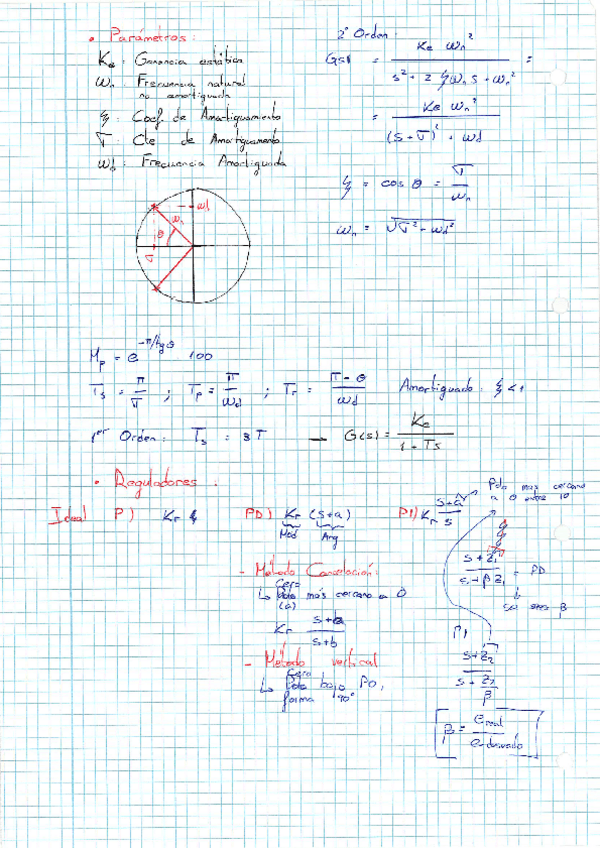 • Parámetros:
Ke: Ganancia estática
ωn: Frecuencia natural
no amortiguada
ξ: Coef. de Amortiguamiento
σ: Cte de Amortiguamiento
ωd: Frecuencia Amortiguada
2º Orden:
G(s) = Ke ωn² / (s² + 2 ξ ωn s + ωn²) =
= Ke ωn² / ((s + σ)² + ωd)
ξ = cos θ = σ / ωn
ωn = √(σ² - ωd²)
ωd
ωn
θ
σ
Mp = e^(-π/tgθ) 100
Ts = π / σ ; Tp = π / ωd ; Tr = (π - θ) / ωd Amortiguado: ξ < 1
1er Orden: Ts = 3T → G(s) = Ke / (1 + Ts)
• Reguladores:
Ideal P) Kr PD) Kr (s+a) PI) Kr (s+a) / s
Mod Arg
Polo más cercano
a 0 entre 10
- Método Cancelación:
Cero
↳ Polo más cercano a 0
(a)
Kr (s+a) / (s+b)
- Método vertical
Cero
↳ Polo bajo PD,
forma 90°
(s+z1) / (s+β z1) = PD
PI
(s+z2) / (s + z2/β)
β = e real / e deseado